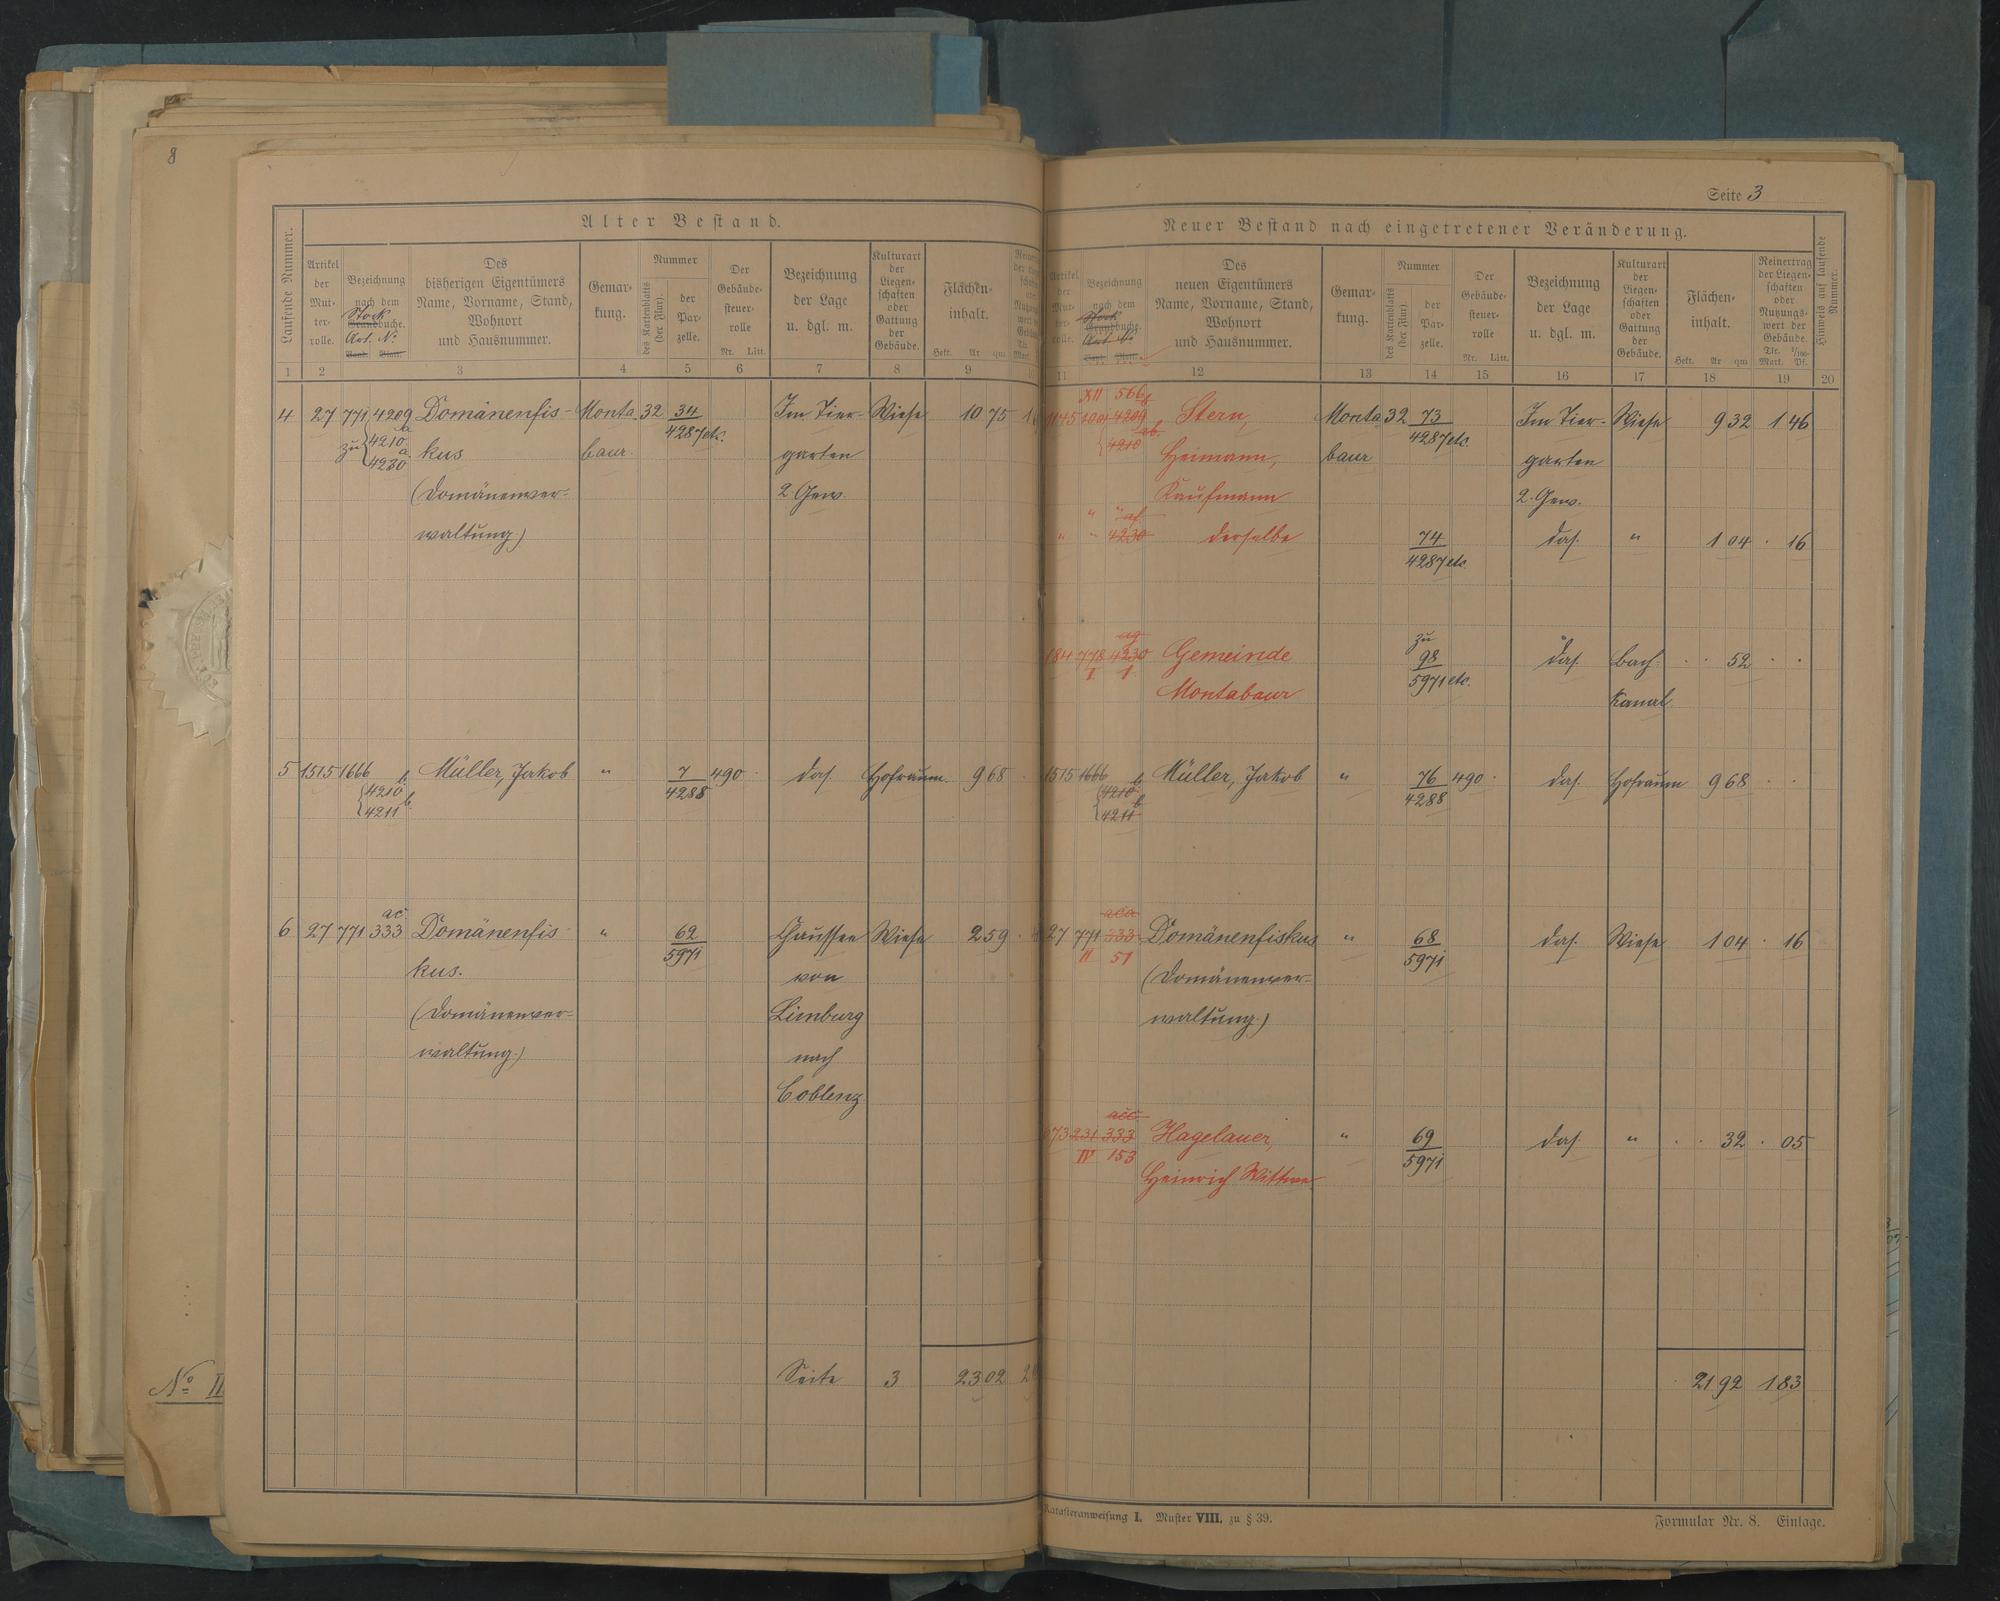 8
Seite 3
Alter Bestand.
Laufende Nummer.
Artikel der Mutterrolle.
Bezeichnung nach dem Grundbuche.
Stock
Art. No
Band. Blatt.
Des bisherigen Eigentümers Name, Vorname, Stand, Wohnort und Hausnummer.
Gemarkung.
Nummer
des Kartenblatts (der Flur).
der Parzelle.
Der Gebäudesteuerrolle
Nr. Litt.
Bezeichnung der Lage u. dgl. m.
Kulturart der Liegenschaften oder Gattung der Gebäude.
Flächeninhalt.
Hekt. Ar qm
1 2 3 4 5 6 7 8 9
4 27 771 4209 Domänenfis- Monta- 32 34 Im Tier- Wiese 10 75
a 4287 etc.
zu 4210 kus baur. garten
a
4230
(Domänenver- 2. Gew.
waltung)
5 1515 1666 Müller, Jakob " 7 490 das. Hofraum 9 68
4210 b 4288
4211 b
6 27 771 ac 333 Domänenfis- " 62 Chaussee Wiese 2 59
kus. 5971 von
(Domänenver- Limburg
waltung.) nach
Coblenz
Seite 3 23 02
Neuer Bestand nach eingetretener Veränderung.
Artikel der Mutterrolle.
Bezeichnung nach dem Grundbuche.
Stock
Art. No
Band. Blatt.
Des neuen Eigentümers Name, Vorname, Stand, Wohnort und Hausnummer.
Gemarkung.
Nummer
des Kartenblatts (der Flur).
der Parzelle.
Der Gebäudesteuerrolle
Nr. Litt.
Bezeichnung der Lage u. dgl. m.
Kulturart der Liegenschaften oder Gattung der Gebäude.
Flächeninhalt.
Hekt. Ar qm
Reinertrag der Liegenschaften oder Nutzungswert der Gebäude.
Tlr. 1/100
Mark. Pf.
Hinweis auf laufende Nummer.
11 12 13 14 15 16 17 18 19 20
XII 566
4209 Stern, Monta- 32 73 Im Tier- Wiese 9 32 1 46
4210 Heimann, baur 4287 etc. garten
Kaufmann 2. Gew.
" " af
" " 4230 derselbe 74 das. " 1 04 . 16
4287 etc.
ag zu
184 778 4230 Gemeinde 98 das. Bach- . . 52 . .
I 1 Montabaur 5971 etc. kanal
1515 1666 Müller, Jakob " 76 490 das. Hofraum 9 68 . .
4210 b 4288
4211 b
aca
27 771 333 Domänenfiskus " 68 das. Wiese 1 04 . 16
II 51 (Domänenver- 5971
waltung.)
acc
231 333 Hagelauer, " 69 das. " . . 32 . 05
IV 153 Heinrich Wittwe 5971
21 92 1 83
No II
Katasteranweisung I. Muster VIII. zu § 39.
Formular Nr. 8. Einlage.